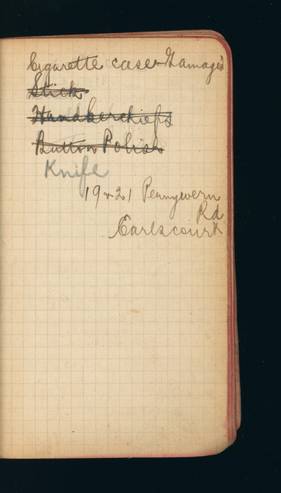 Cigarette case Gamages
Stick
Handkerchiefs
Button Polish
Knife
19 & 21 Pennywern
Rd
Earlscourt